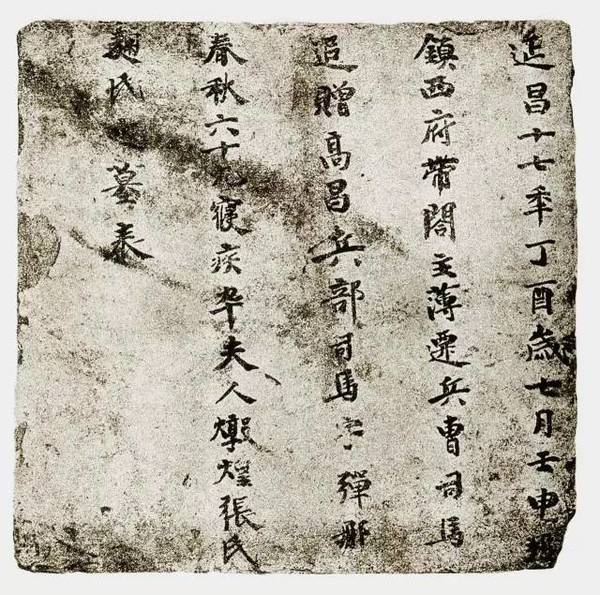 延昌十七季丁酉歲七月壬申
鎮西府帶閤主薄遷兵曹司馬
追贈高昌兵部司馬字彈那
春秋六十九寢疾卒夫人燉煌張氏
麴氏墓表